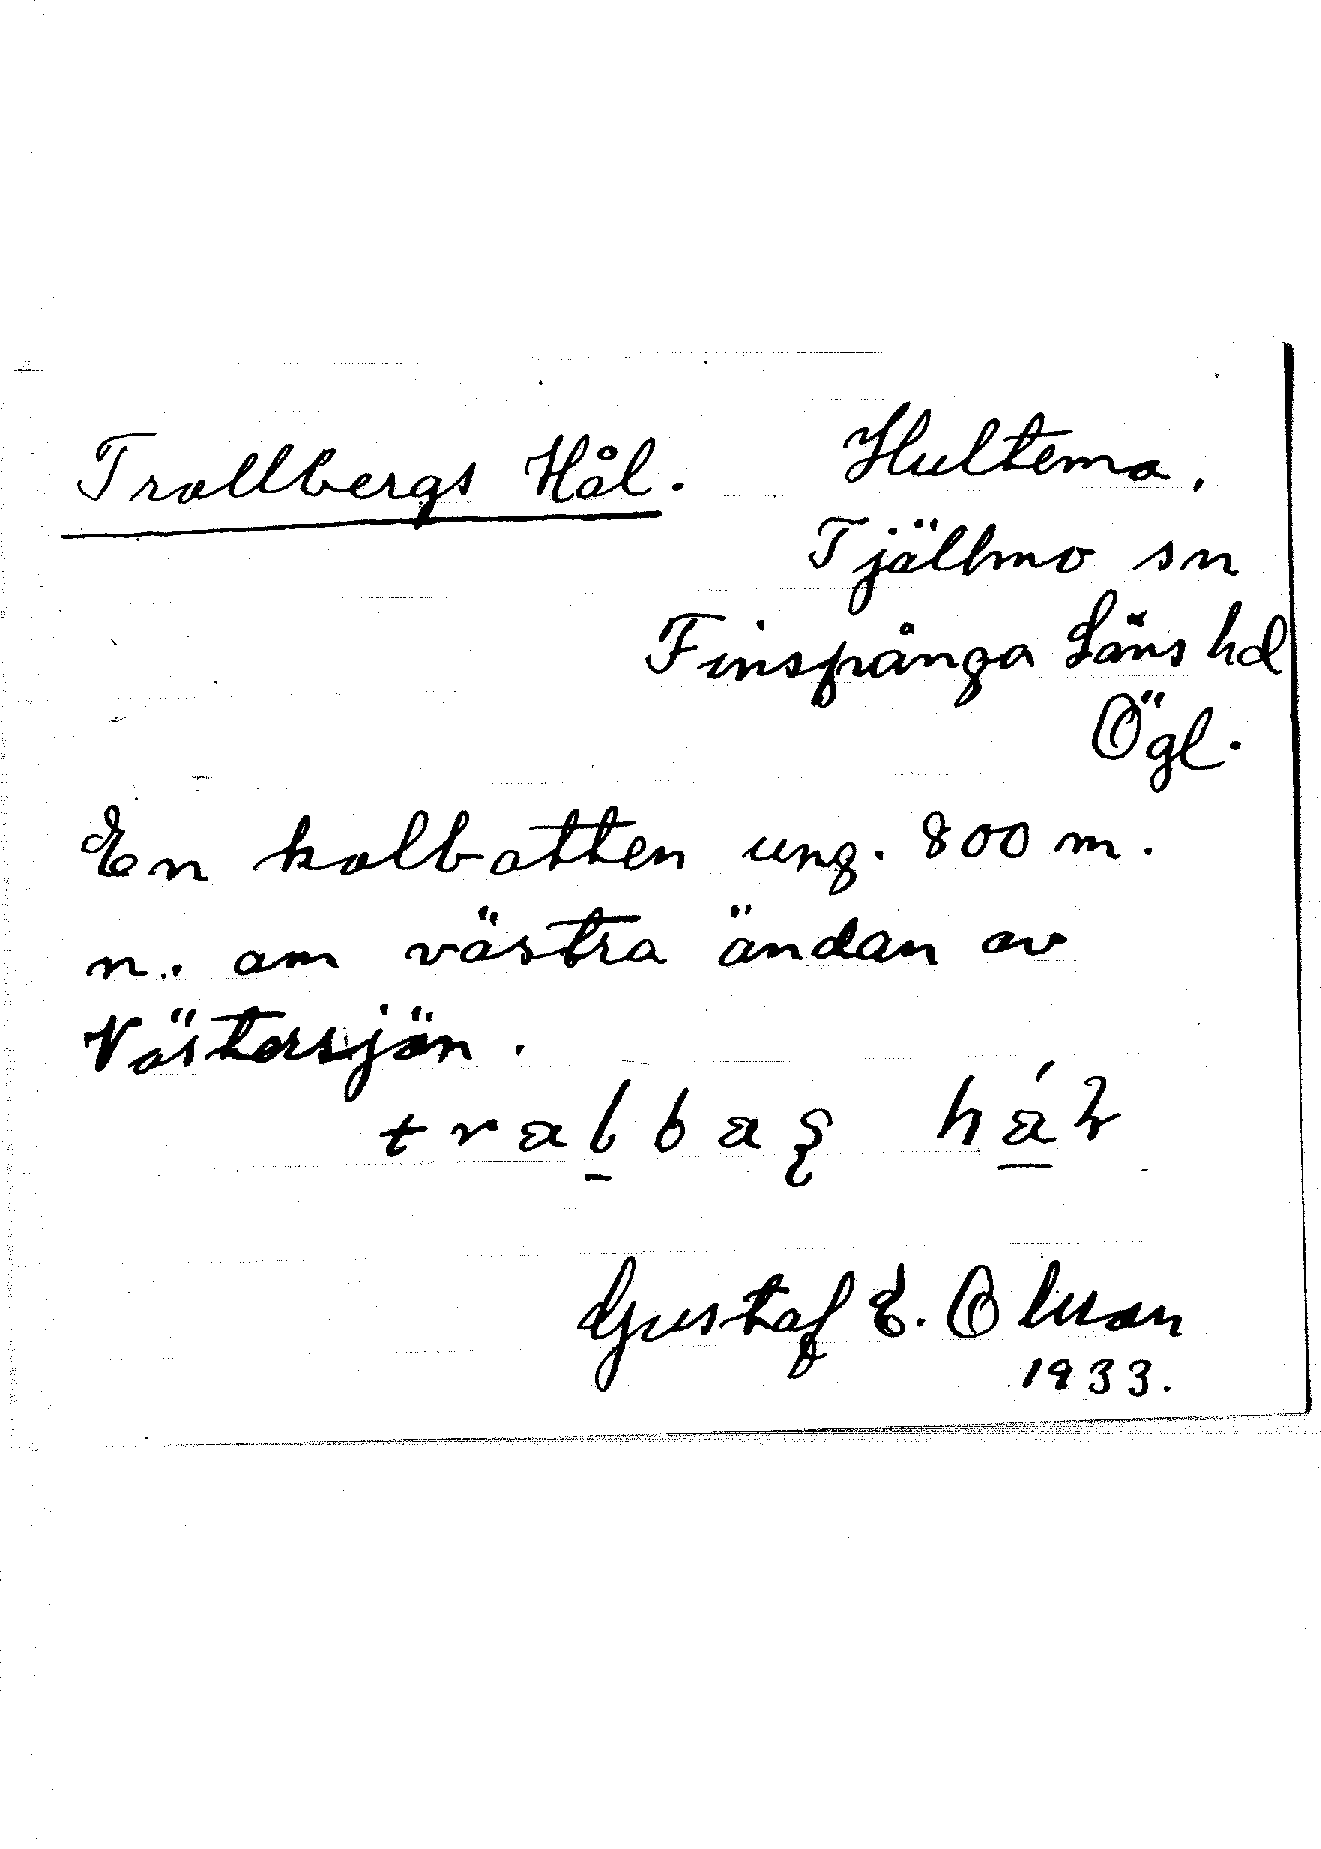 Trollbergs Hål. Hultema,
Tjällmo sn
Finspånga Läns hd
Ögl.
En kolbotten ung. 800 m.
n. om västra ändan av
Västersjön.
Gustaf E. Olsson
1933.